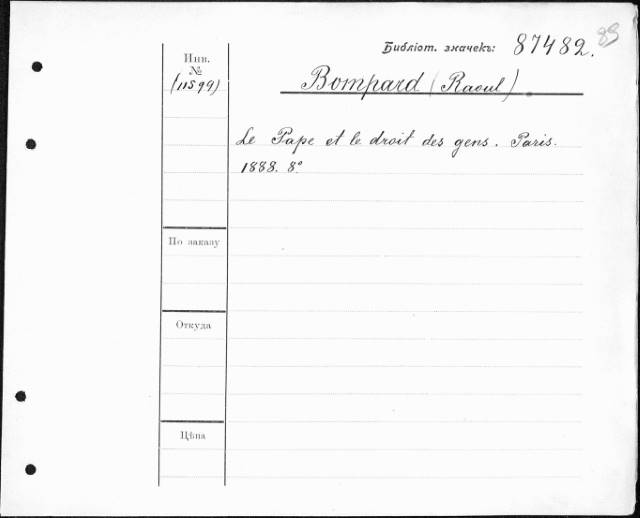 Библіот. значекъ: 87482. 89
Инв.
№
(11599)
Bompard (Raoul)
Le Pape et le droit des gens. Paris.
1888. 8°.
По заказу
Откуда
Цѣна